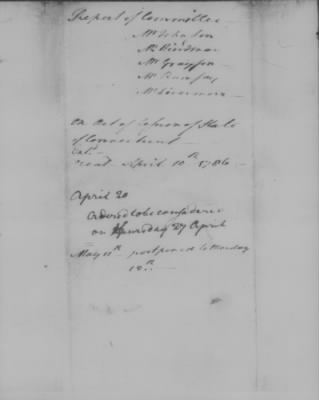 Report of Committee
Mr Johnson
Mr Hindman
Mr Grayson
Mr Ramsay
Mr Livermore
On Act of Cession of State
of Connecticut
Ent.d
read April 10th 1786
April 20
Ordered to be considered
on Thursday 27 April
May 11th postponed to Monday
15th